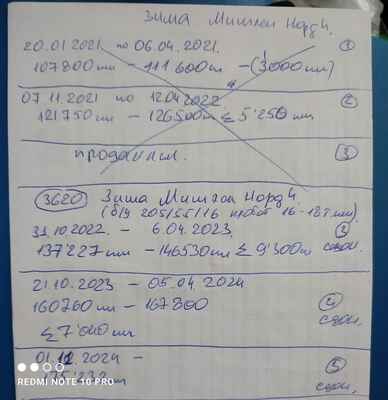 Зима Мишлен Норд 4.
20.01 2021 по 06.04.2021. ①
107800 км - 111600 км - (3'000 км)
07.11.2021 по 12.04.2022. ②
121750 км - 126500 км ≤ 5'250 км
продании. ③
3620 Зима Мишлен Норд 4
(б/у 205/55/16 16-18 т.км)
31.10 2022. - 6.04.2023. ③
137'227 км - 146530 км ≤ 9'300 км сезон.
21.10.2023 - 05.04.2024
160760 км - 167800 ④
сезон.
≤ 7'040 км
01.12.2024 - ⑤
175'232 км сезон.
REDMI NOTE 10 PRO